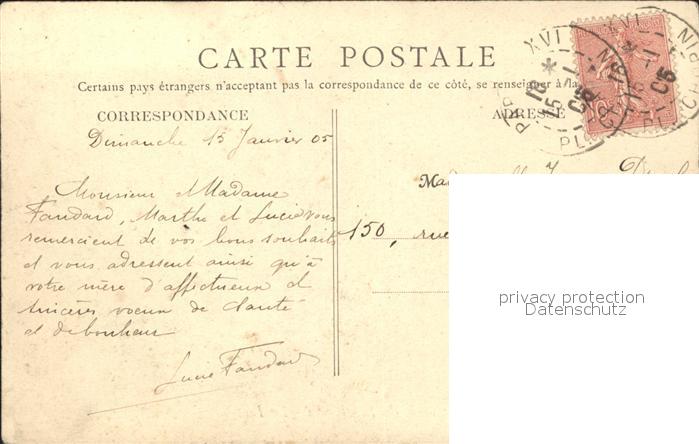 CARTE POSTALE
Certains pays étrangers n'acceptant pas la correspondance de ce côté, se renseigner à la
CORRESPONDANCE
ADRESSE
Dimanche 15 Janvier 05
Monsieur et Madame
Fandard, Marthe et Lucie vous
remercient de vos bons souhaits
et vous adressent ainsi qu'à
votre mère d'affectueux et
sincères voeux de santé
et de bonheur
Lucie Fandard
150, rue
privacy protection
Datenschutz
XVI
PL